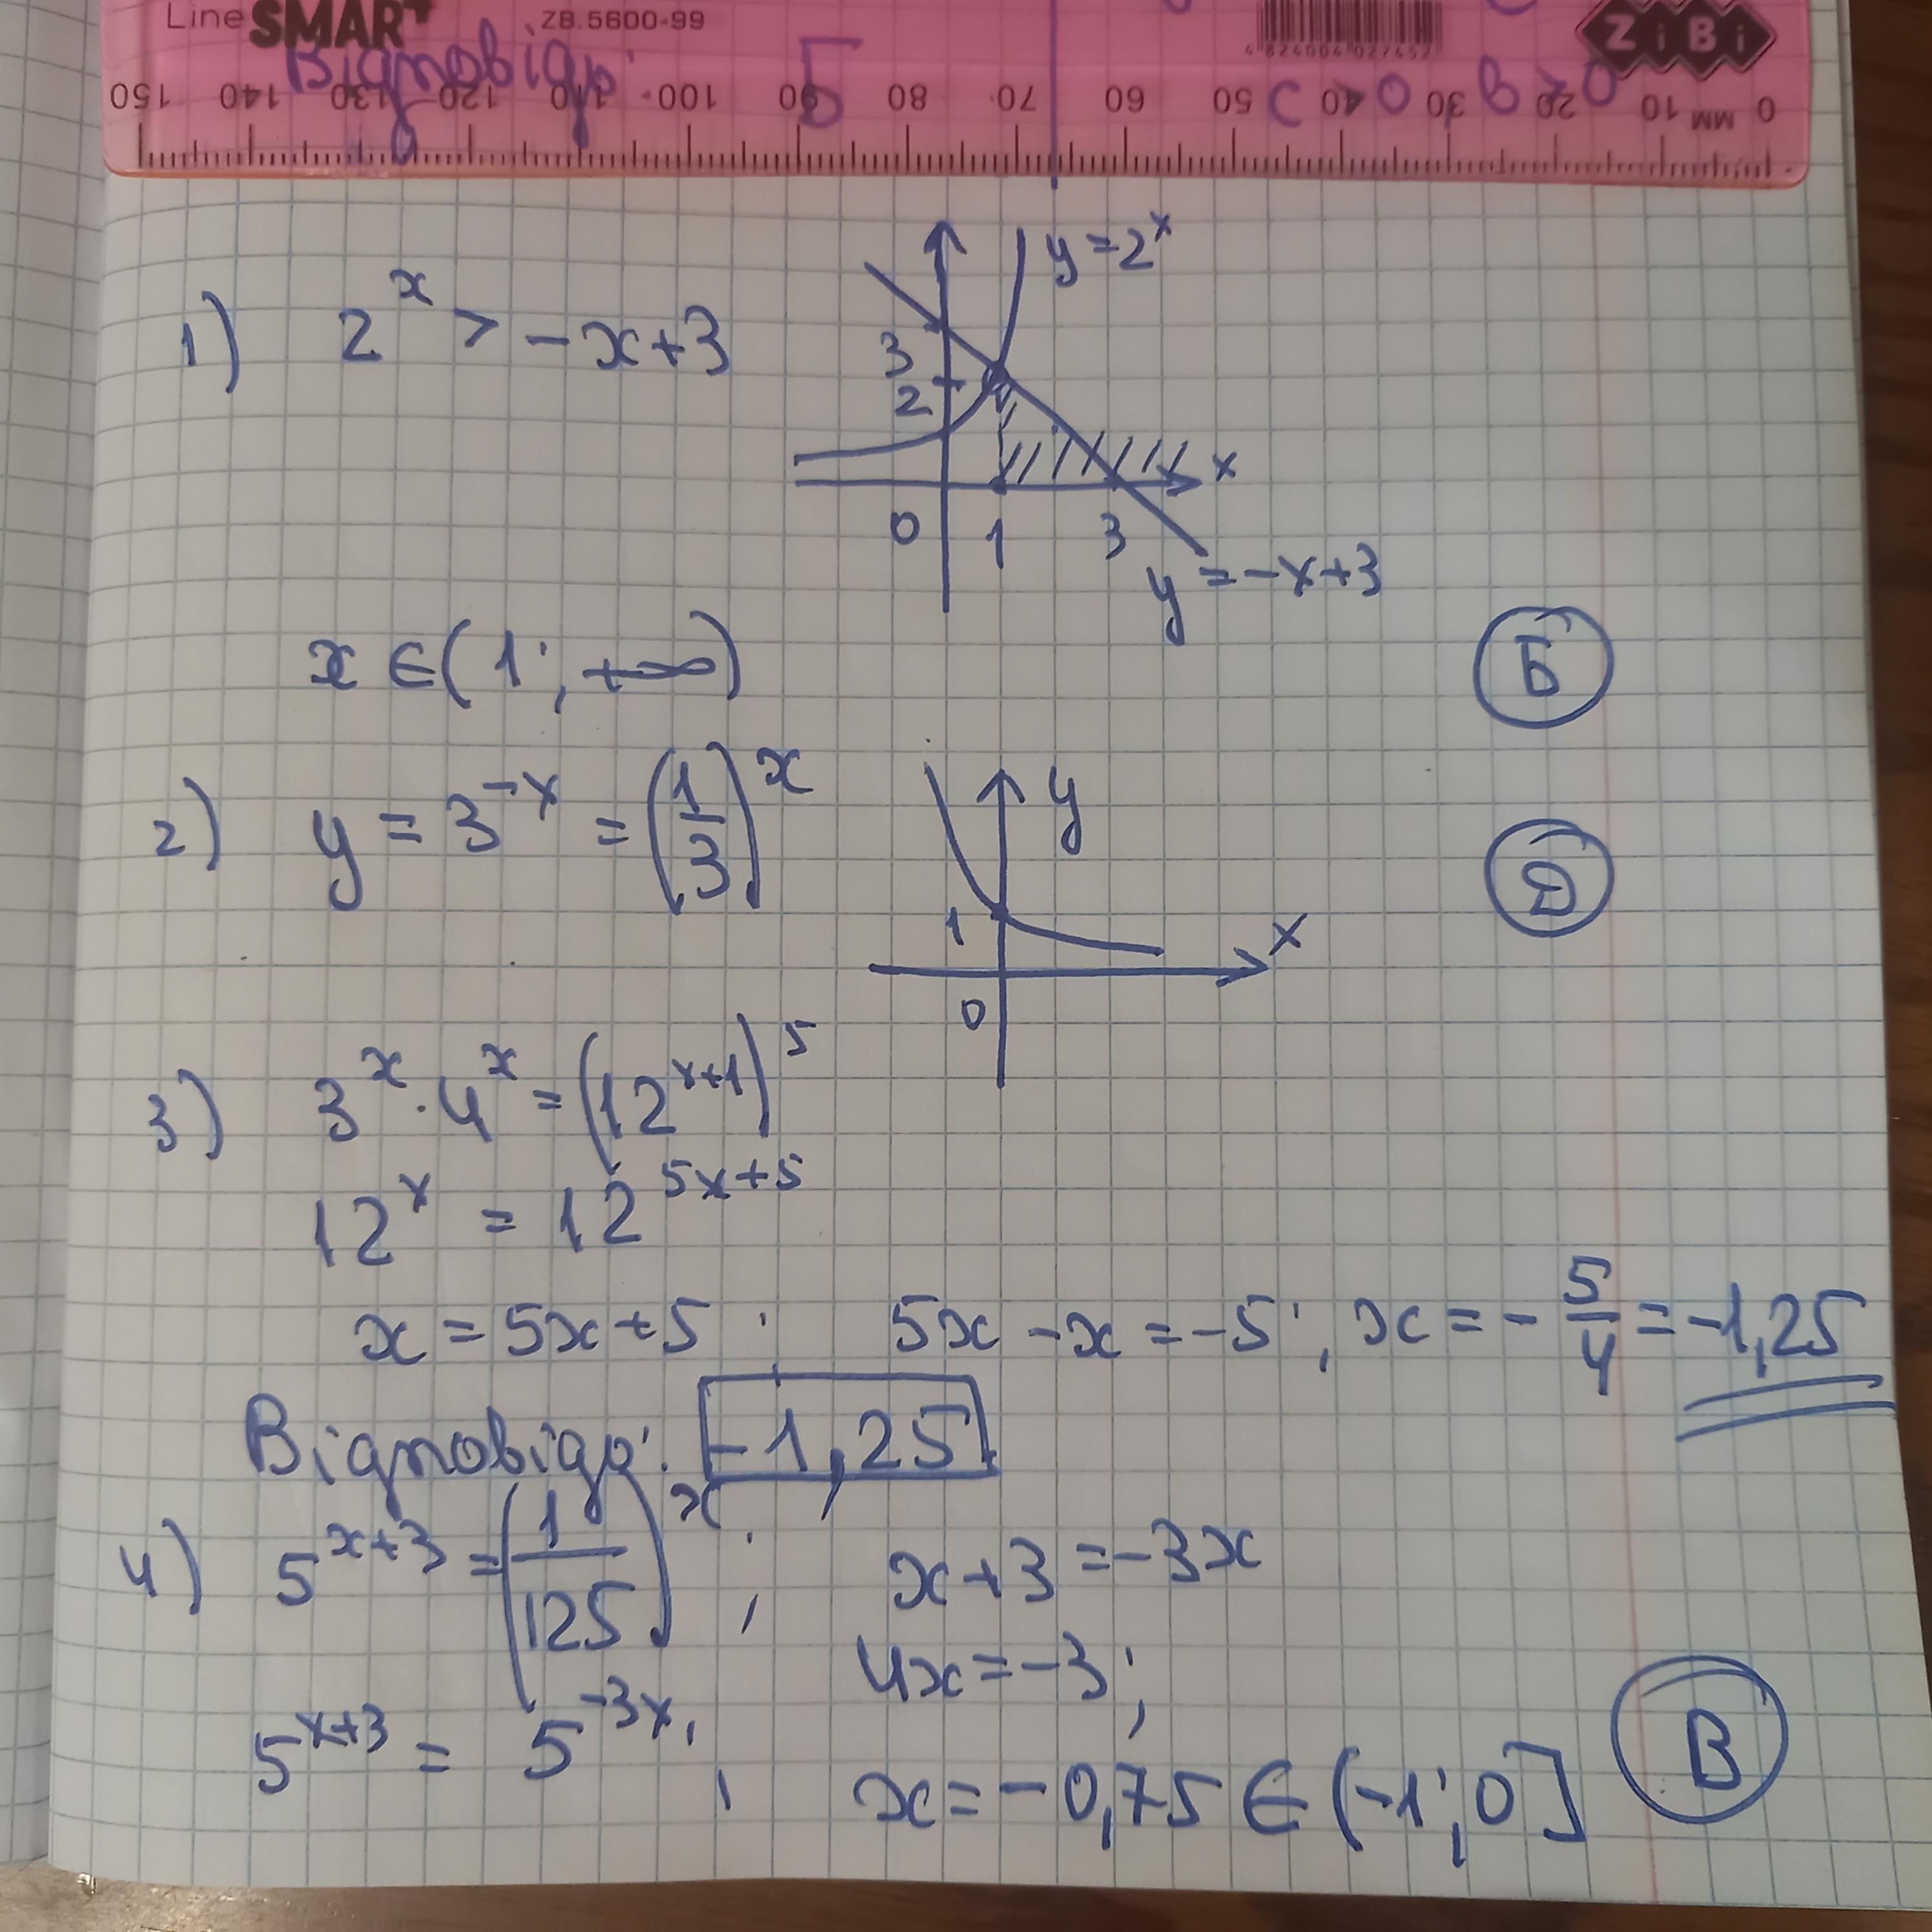 Line SMART ZB.5600-99
4 824004 027452
ZiBi
Відповідь: 5
150 140 130 120 110 100 90 80 70 60 50 40 30 20 10 MM 0
1) 2^x > -x+3
y = 2^x
3
2
x
0 1 3
y = -x+3
x ∈ (1; +∞)
Б
2) y = 3^-x = (1/3)^x
y
1
x
0
Д
3) 3^x · 4^x = (12^x+1)^5
12^x = 12^5x+5
x = 5x+5; 5x - x = -5; x = -5/4 = -1,25
Відповідь: -1,25
4) 5^x+3 = (1/125)^x; x+3 = -3x
4x = -3;
5^x+3 = 5^-3x; x = -0,75 ∈ (-1; 0]
В